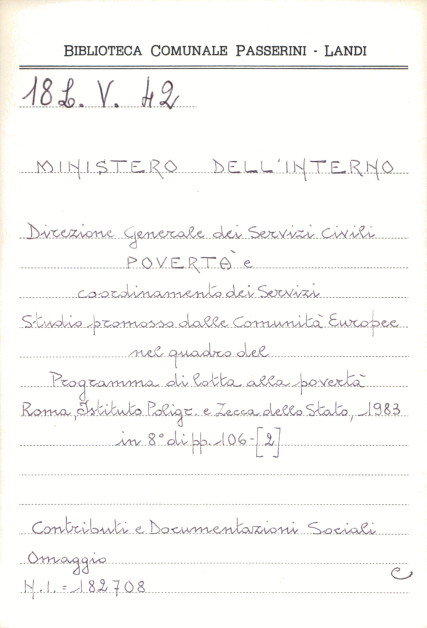 BIBLIOTECA COMUNALE PASSERINI - LANDI
18 L. V. 42
MINISTERO DELL'INTERNO
Direzione Generale dei Servizi Civili
POVERTÀ e
coordinamento dei Servizi
Studio promosso dalle Comunità Europee
nel quadro del
Programma di lotta alla povertà
Roma, Istituto Poligr. e Zecca dello Stato, 1983
in 8° di pp. 106-[2]
Contributi e Documentazioni Sociali
Omaggio
N.I. = 182708
e